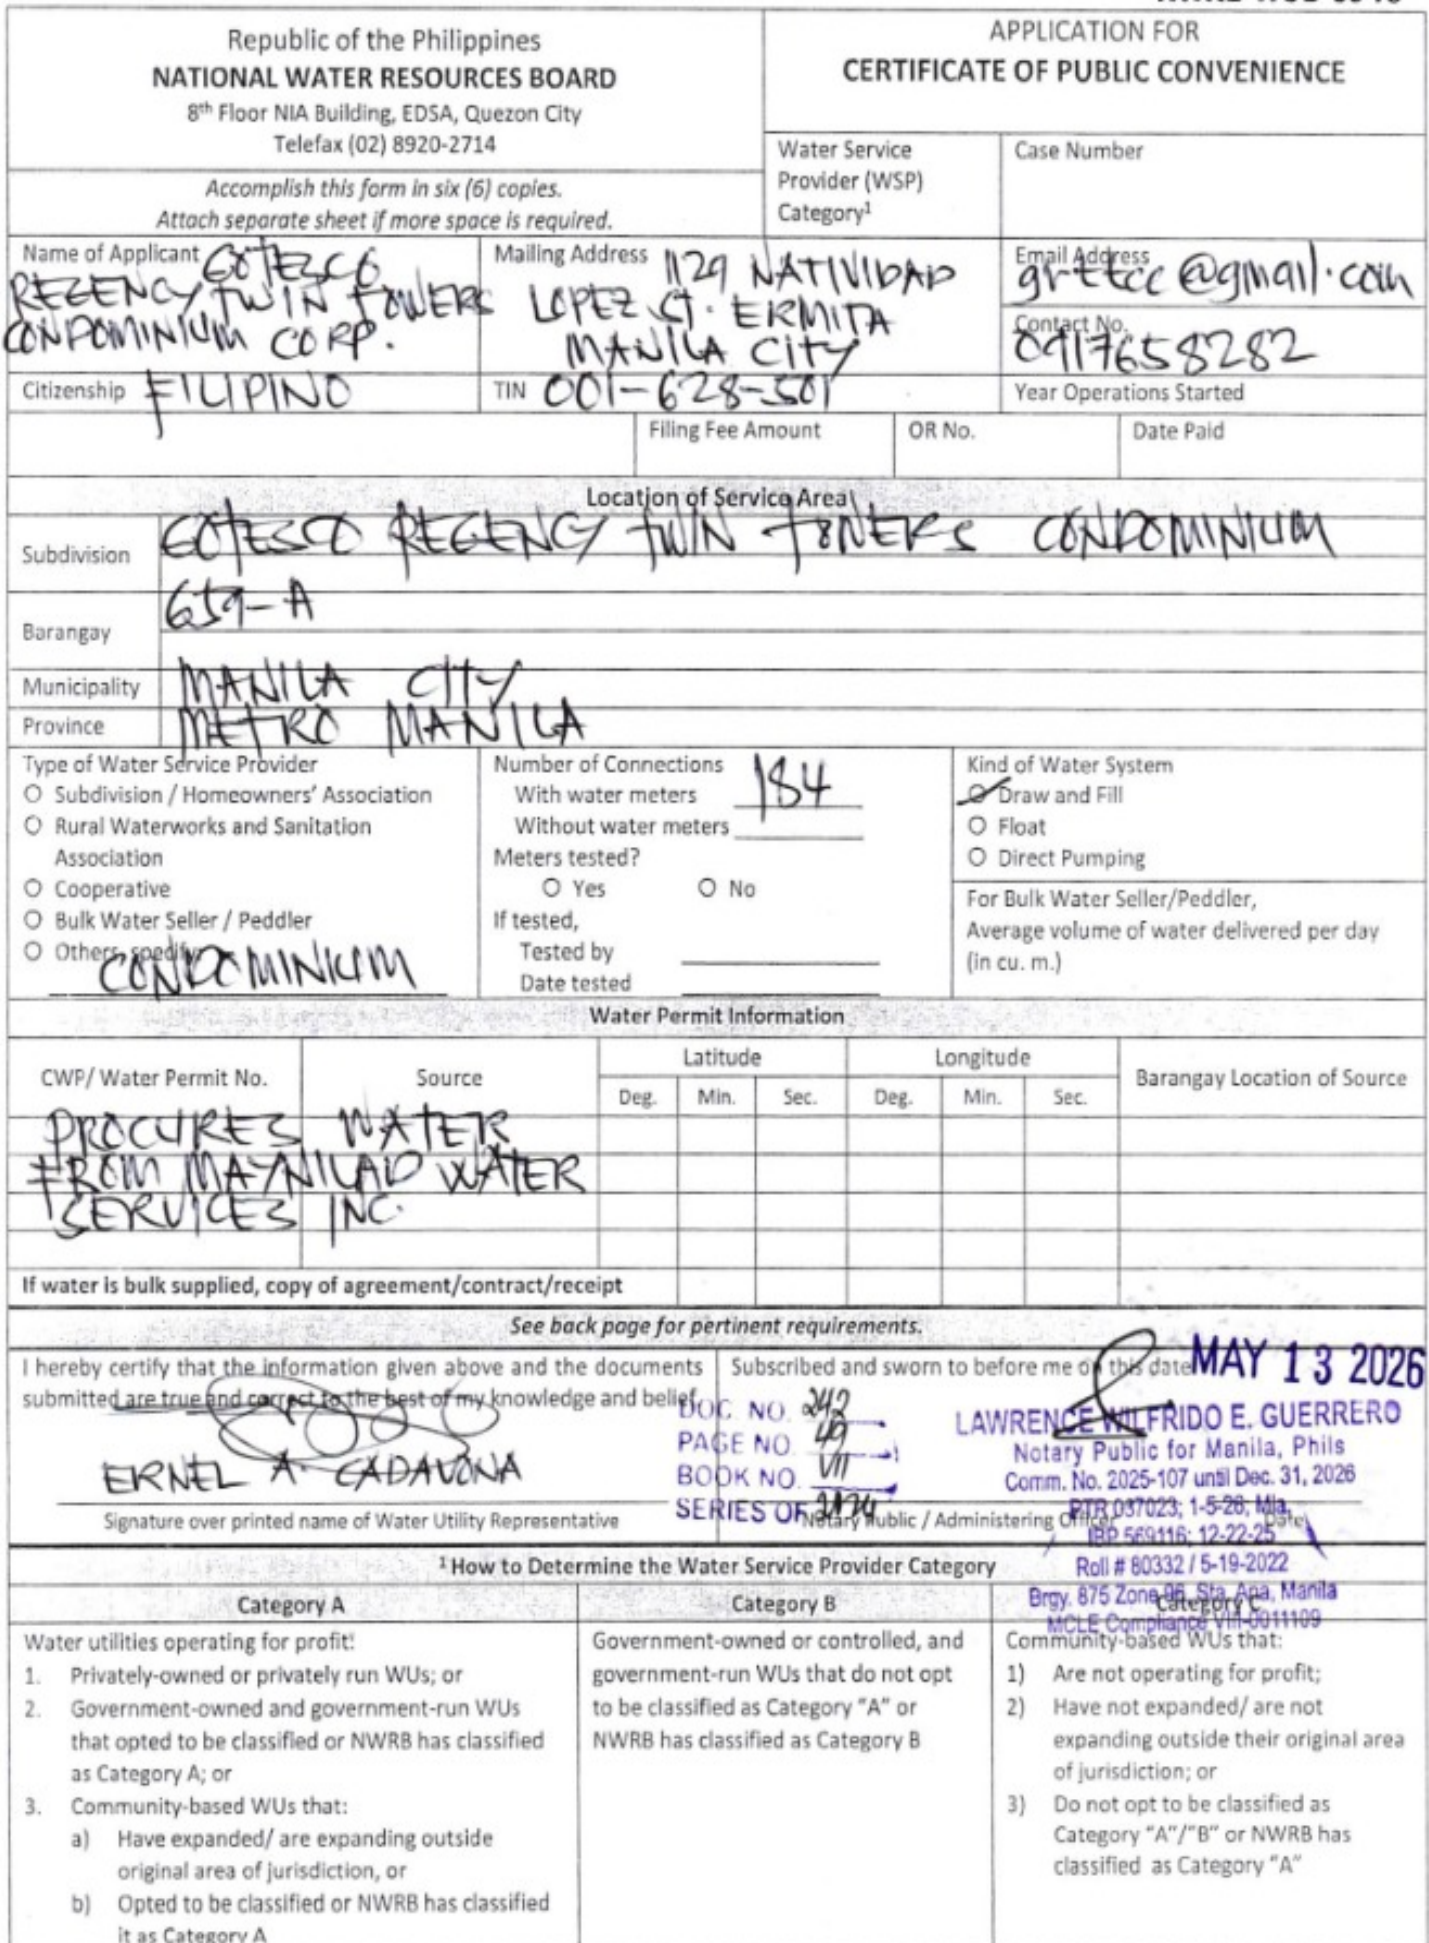 Republic of the Philippines
NATIONAL WATER RESOURCES BOARD
8th Floor NIA Building, EDSA, Quezon City
Telefax (02) 8920-2714
Accomplish this form in six (6) copies.
Attach separate sheet if more space is required.
APPLICATION FOR
CERTIFICATE OF PUBLIC CONVENIENCE
Water Service
Provider (WSP)
Category1
Case Number
Name of Applicant GOTESCO
REGENCY TWIN TOWERS
CONDOMINIUM CORP.
Mailing Address 1129 NATIVIDAD
LOPEZ ST. ERMITA
MANILA CITY
Email Address
grttcc@gmail.com
Contact No.
0917658282
Citizenship FILIPINO
TIN 001-628-501
Year Operations Started
Filing Fee Amount
OR No.
Date Paid
Location of Service Area
Subdivision GOTESCO REGENCY TWIN TOWERS CONDOMINIUM
Barangay 659-A
Municipality MANILA CITY
Province METRO MANILA
Type of Water Service Provider
O Subdivision / Homeowners' Association
O Rural Waterworks and Sanitation
Association
O Cooperative
O Bulk Water Seller / Peddler
O Others, specify
CONDOMINIUM
Number of Connections
With water meters 184
Without water meters
Meters tested?
O Yes O No
If tested,
Tested by
Date tested
Kind of Water System
O Draw and Fill
O Float
O Direct Pumping
For Bulk Water Seller/Peddler,
Average volume of water delivered per day
(in cu. m.)
Water Permit Information
CWP/ Water Permit No.
Source
Latitude
Longitude
Barangay Location of Source
Deg. Min. Sec. Deg. Min. Sec.
PROCURES WATER
FROM MAYNILAD WATER
SERVICES INC.
If water is bulk supplied, copy of agreement/contract/receipt
See back page for pertinent requirements.
I hereby certify that the information given above and the documents
submitted are true and correct to the best of my knowledge and belief.
ERNEL A. CADAVONA
Signature over printed name of Water Utility Representative
Subscribed and sworn to before me on this date MAY 13 2026
DOC. NO. 242
PAGE NO. 49
BOOK NO. VII
SERIES OF
LAWRENCE WILFRIDO E. GUERRERO
Notary Public for Manila, Phils
Comm. No. 2025-107 until Dec. 31, 2026
PTR 037023; 1-5-26; Mla.
IBP 569116; 12-22-25
Roll # 80332 / 5-19-2022
Brgy. 875 Zone 96, Sta. Ana, Manila
MCLE Compliance VIII-0011109
Notary Public / Administering Officer Date
1 How to Determine the Water Service Provider Category
Category A
Water utilities operating for profit:
1. Privately-owned or privately run WUs; or
2. Government-owned and government-run WUs
that opted to be classified or NWRB has classified
as Category A; or
3. Community-based WUs that:
a) Have expanded/ are expanding outside
original area of jurisdiction, or
b) Opted to be classified or NWRB has classified
it as Category A
Category B
Government-owned or controlled, and
government-run WUs that do not opt
to be classified as Category "A" or
NWRB has classified as Category B
Category C
Community-based WUs that:
1) Are not operating for profit;
2) Have not expanded/ are not
expanding outside their original area
of jurisdiction; or
3) Do not opt to be classified as
Category "A"/"B" or NWRB has
classified as Category "A"